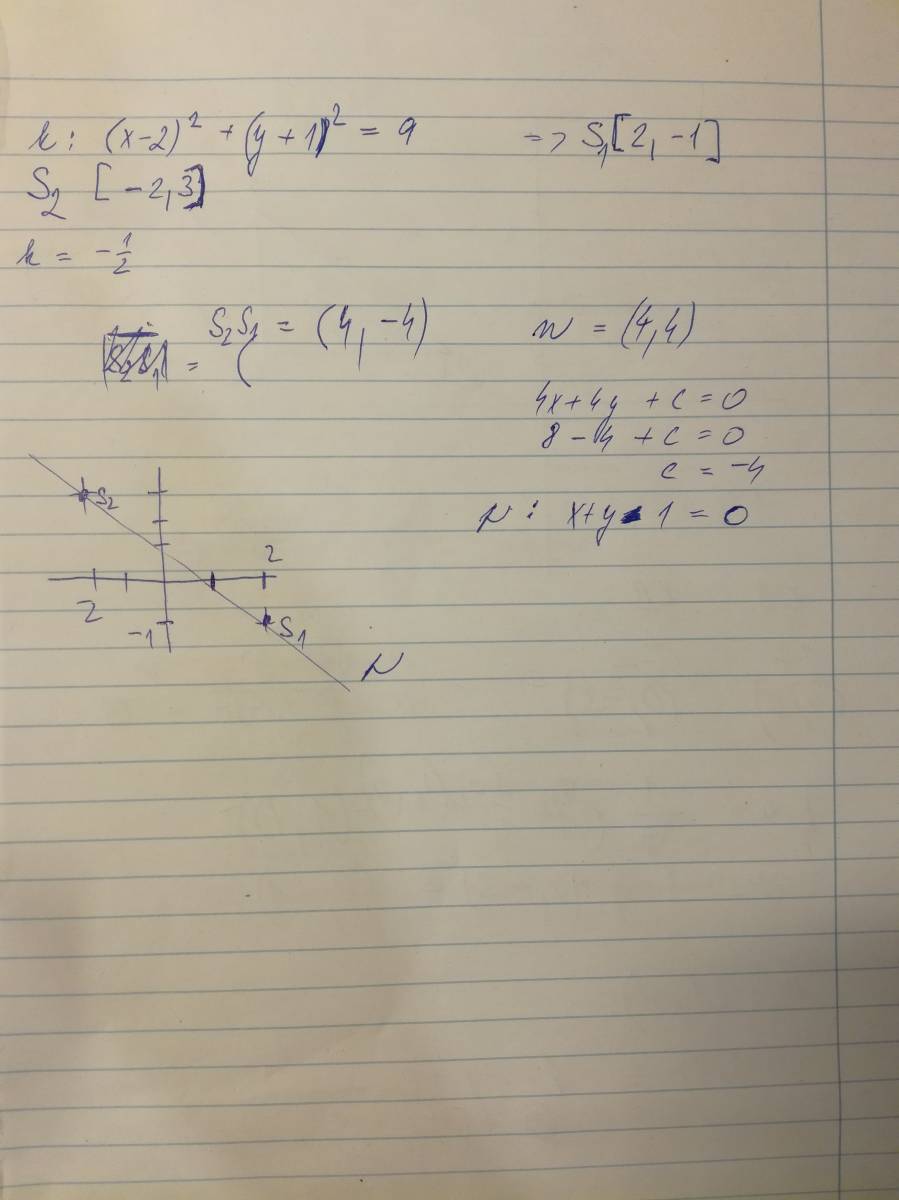 k: (x-2)² + (y+1)² = 9 => S₁[2, -1]
S₂ [-2,3]
k = -1/2
S₂S₁ = (4, -4) n = (4,4)
= (
4x+4y + c = 0
8 - 4 + c = 0
c = -4
p: x+y-1 = 0
S₂
2
2
-1
S₁
p